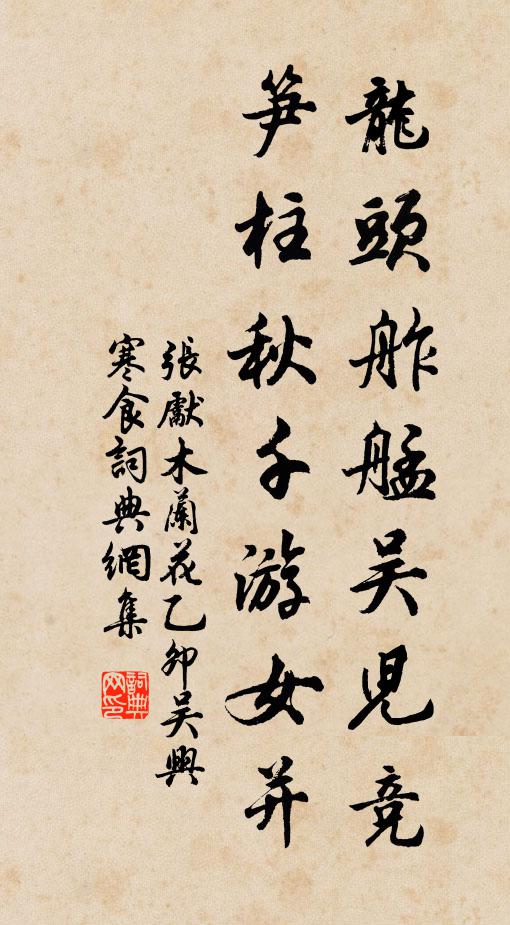 龍頭舴艋吳兒竞
笋柱秋千游女并
張獻木蘭花乙卯吳興
寒食詞典網集
詞典
网印